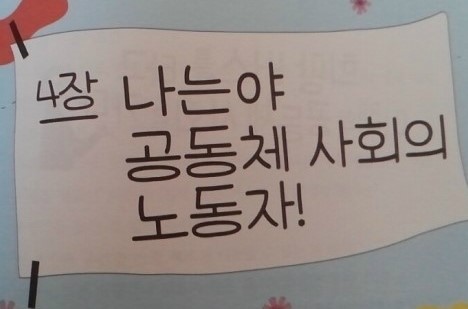 4장 나는야
공동체 사회의
노동자!